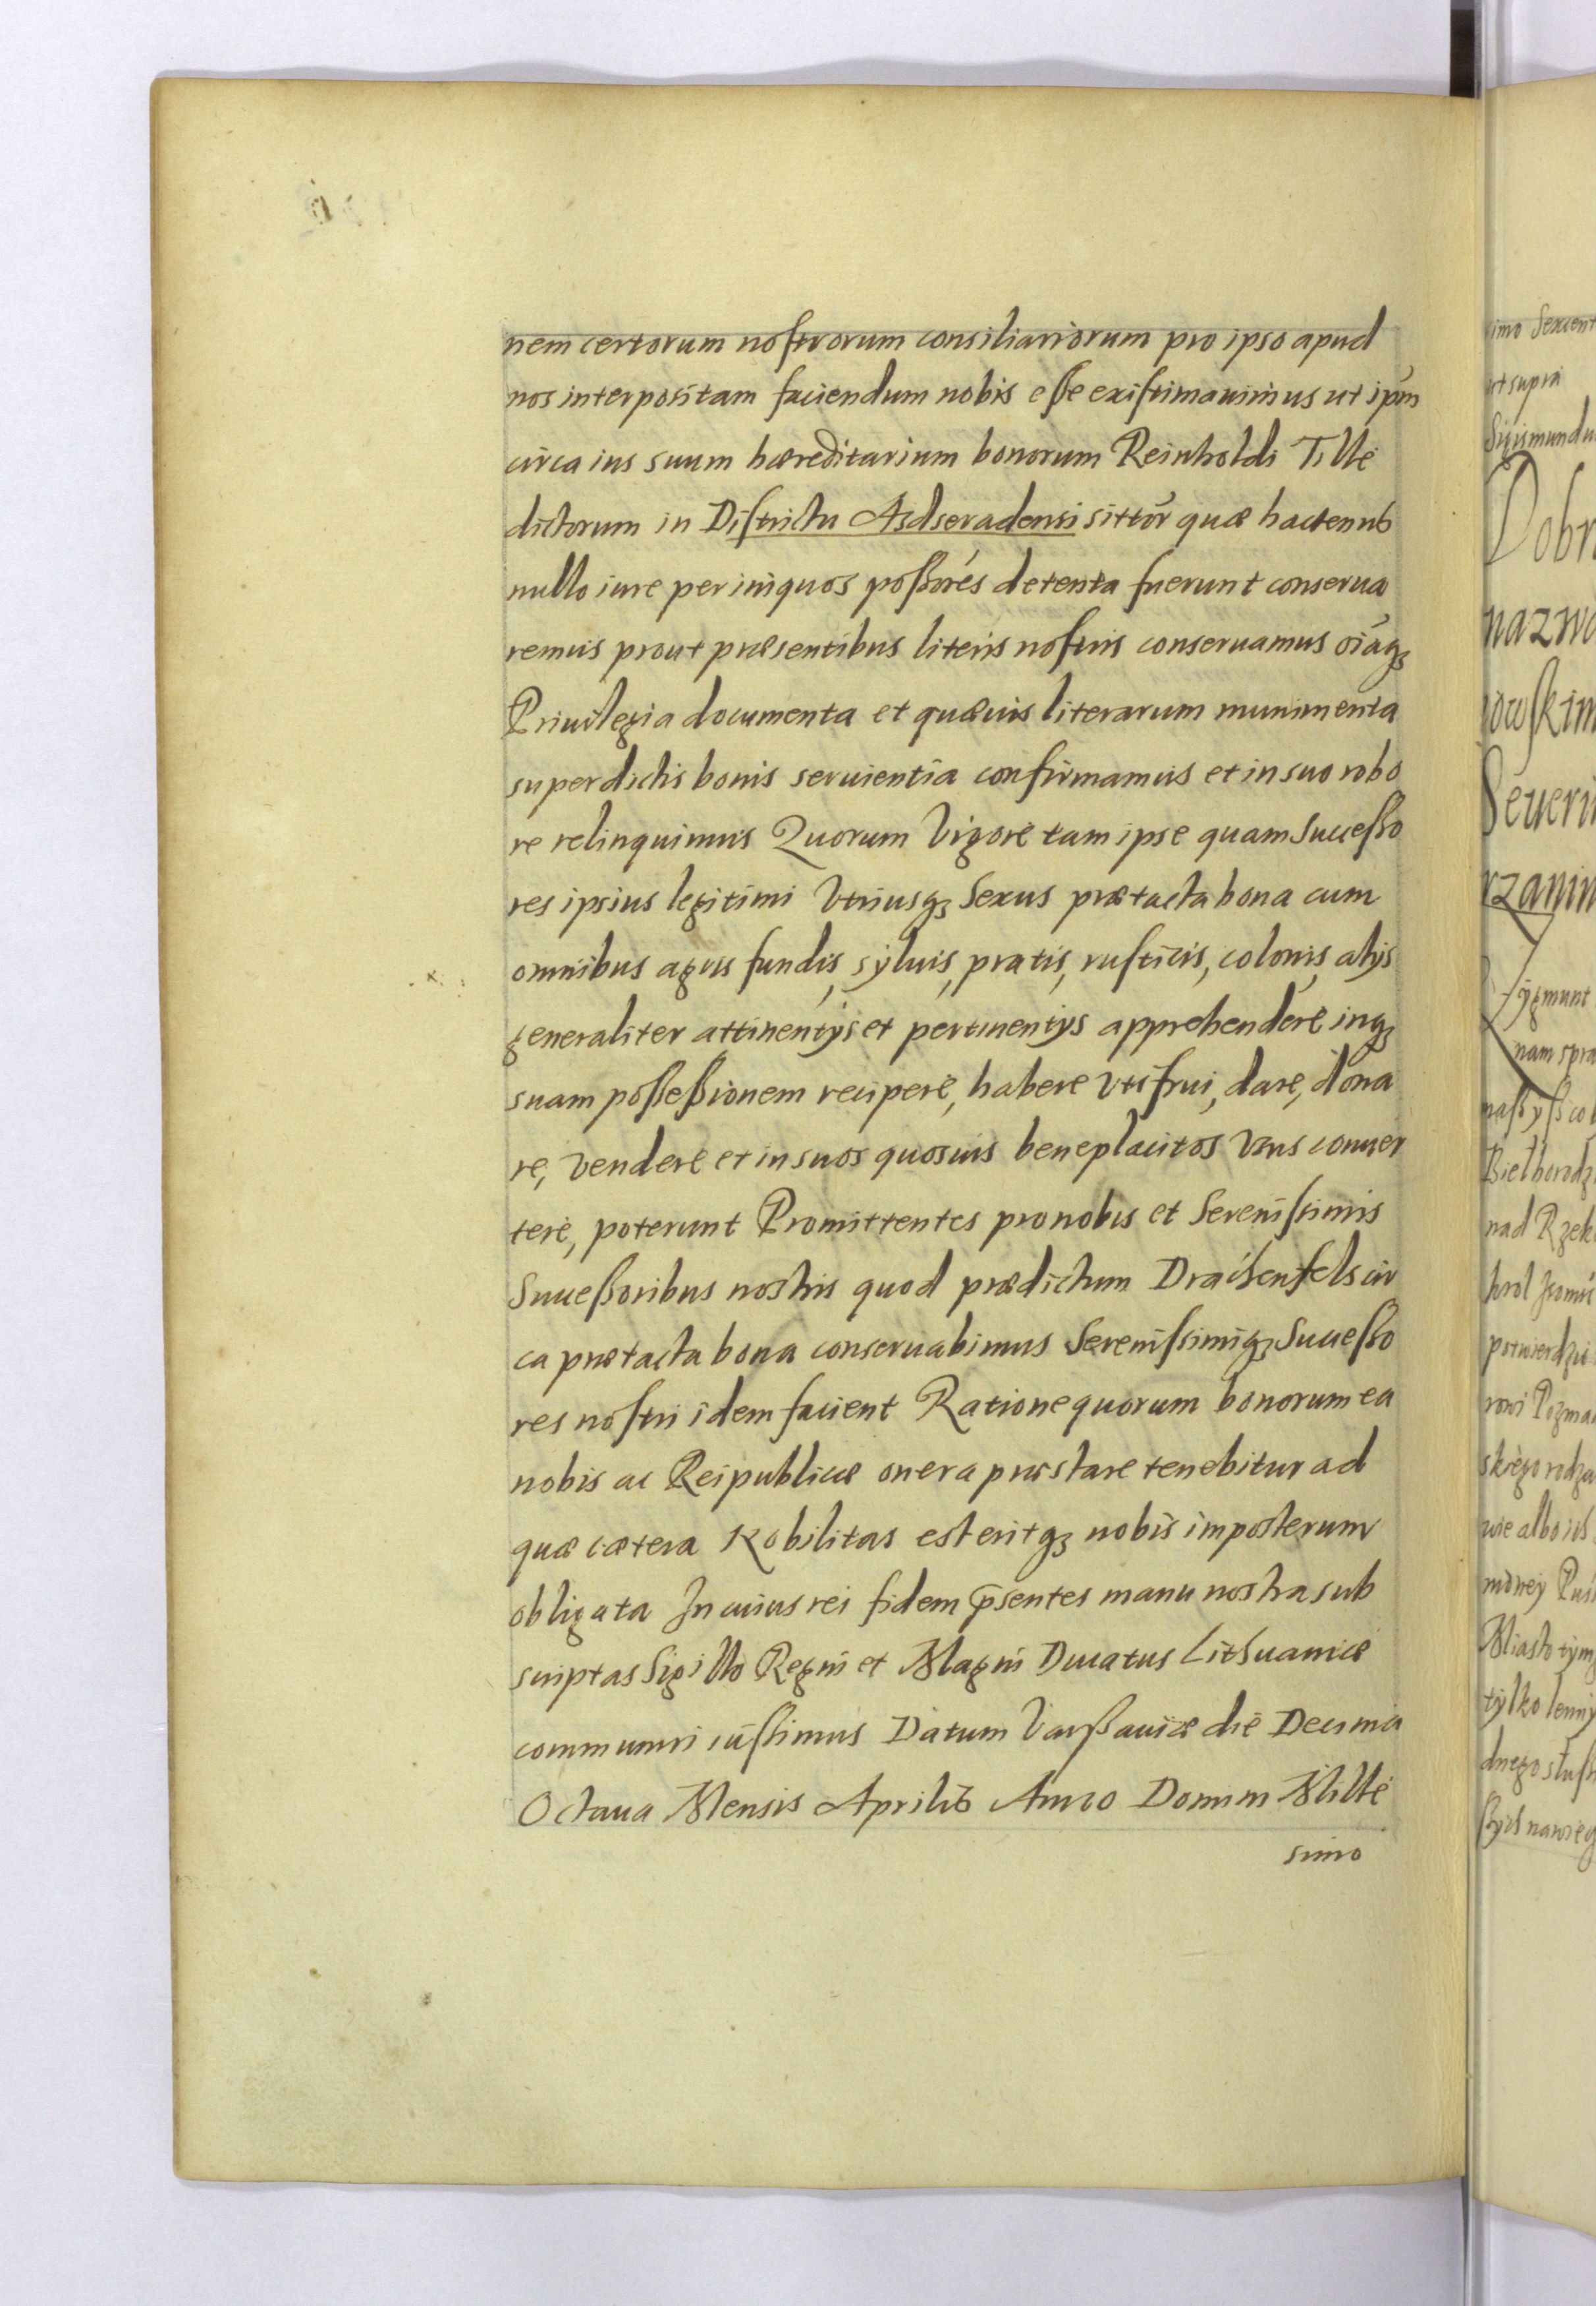 nem certorum nostrorum consiliariorum pro ipso apud
nos interpositam faciendum nobis esse existimauimus ut ipm̄
circa ius suum hæreditarium bonorum Reinholdi Tille
dictorum in Districtu Asdseradensi sittōr quæ hactenus
nullo iure per iniquos possōres detenta fuerunt conserua
remus prout præsentibus literis nostris conseruamus oīaq3
Priuilegia documenta et quæuis literarum munimenta
super dictis bonis seruientia confirmamus et in suo robo
re relinquimus Quorum Vigore tam ipse quam Successo
res ipsius legitimi Vtriusq3 Sexus prætacta bona cum
omnibus agris fundis, syluis, pratis, rusticis, colonis, alijs
generaliter attinentijs et pertinentijs apprehendere inq3
suam possessionem recipere, habere Vti frui, dare, dona
re, Vendere et in suos quosuis beneplacitos Vsus conuer
tere, poterunt Promittentes pro nobis et Serenissimis
Successoribus nostris quod prædictum Drachenfels cir
ca prætacta bona conseruabimus Serenissimiq3 Successo
res nostri idem facient Ratione quorum bonorum ea
nobis ac Reipublicæ onera præstare tenebitur ad
quæ cætera Nobilitas est eritq3 nobis imposterum
obligata In cuius rei fidem p̄sentes manu nostra sub
scriptas Sigillo Regni et Magni Ducatus Lithuaniæ
communiri iussimus Datum Varssauiæ die Decima
Octaua Mensis Aprilis Anno Domini Mille
simo
simo Sexcent
ut supra
Sigismundu
Dobr
nazwa
iowskim
Seueri
rzanin
Zygmunt
nam spra
nad Rzek
potwierdzi
skiego rodza
wie albo ich
Miasto tym
tylko lenny